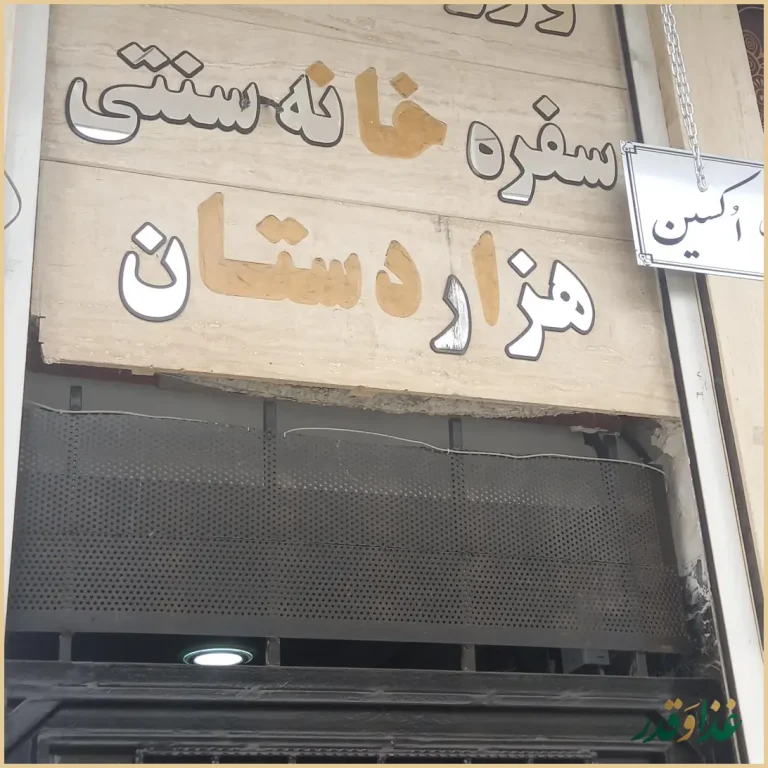 سفره خانه سنتی
هزاردستان
اُکسین
غذا و قدر